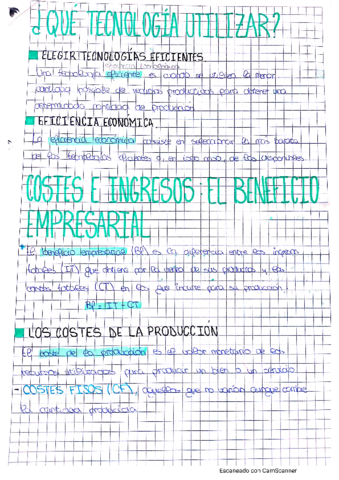 ¿QUÉ TECNOLOGÍA UTILIZAR?
ELEGIR TECNOLOGÍAS EFICIENTES
Una tecnología eficiente es cuando se utiliza la menor
cantidad posible de factores productivos para obtener una
determinada cantidad de producción
EFICIENCIA ECONÓMICA
La eficiencia económica consiste en seleccionar la más barata
de las tecnologías eficientes disponibles
COSTES E INGRESOS: EL BENEFICIO
EMPRESARIAL
El beneficio empresarial (Bº) es la diferencia entre los ingresos
totales (IT) que obtiene por la venta de sus productos y los
costes totales (CT) en los que incurre para su producción
Bº = IT - CT
LOS COSTES DE LA PRODUCCIÓN
El coste de la producción es el valor monetario de los
recursos utilizados para producir un bien o un servicio
- COSTES FIJOS (CF), aquellos que no varían aunque cambie
la cantidad producida
Escaneado con CamScanner